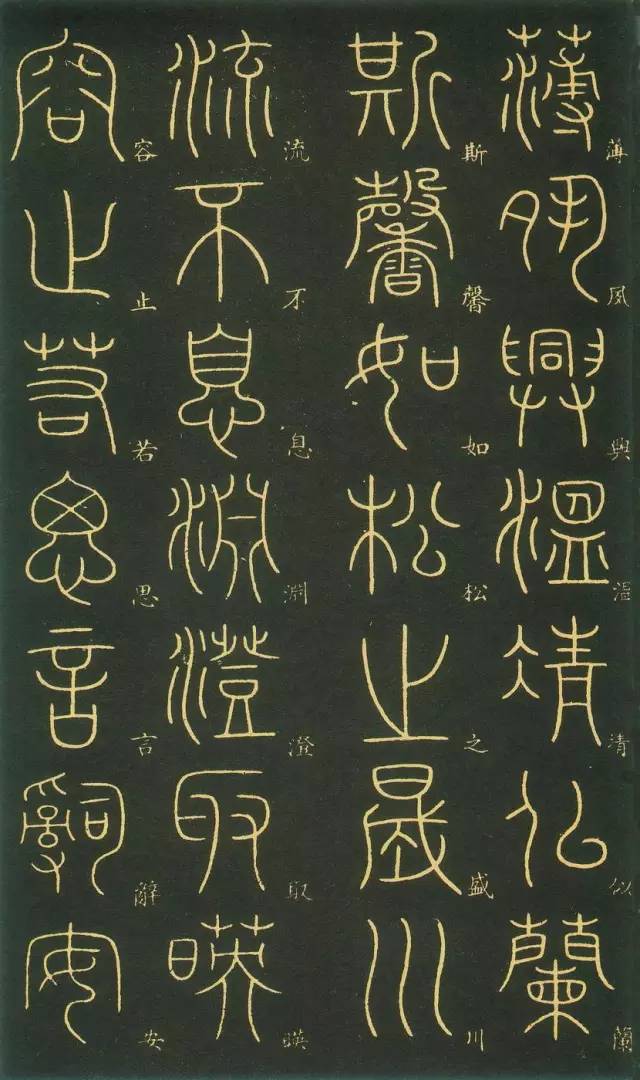 薄夙興温清似蘭
斯馨如松之盛川
流不息淵澄取暎
容止若思言辭安